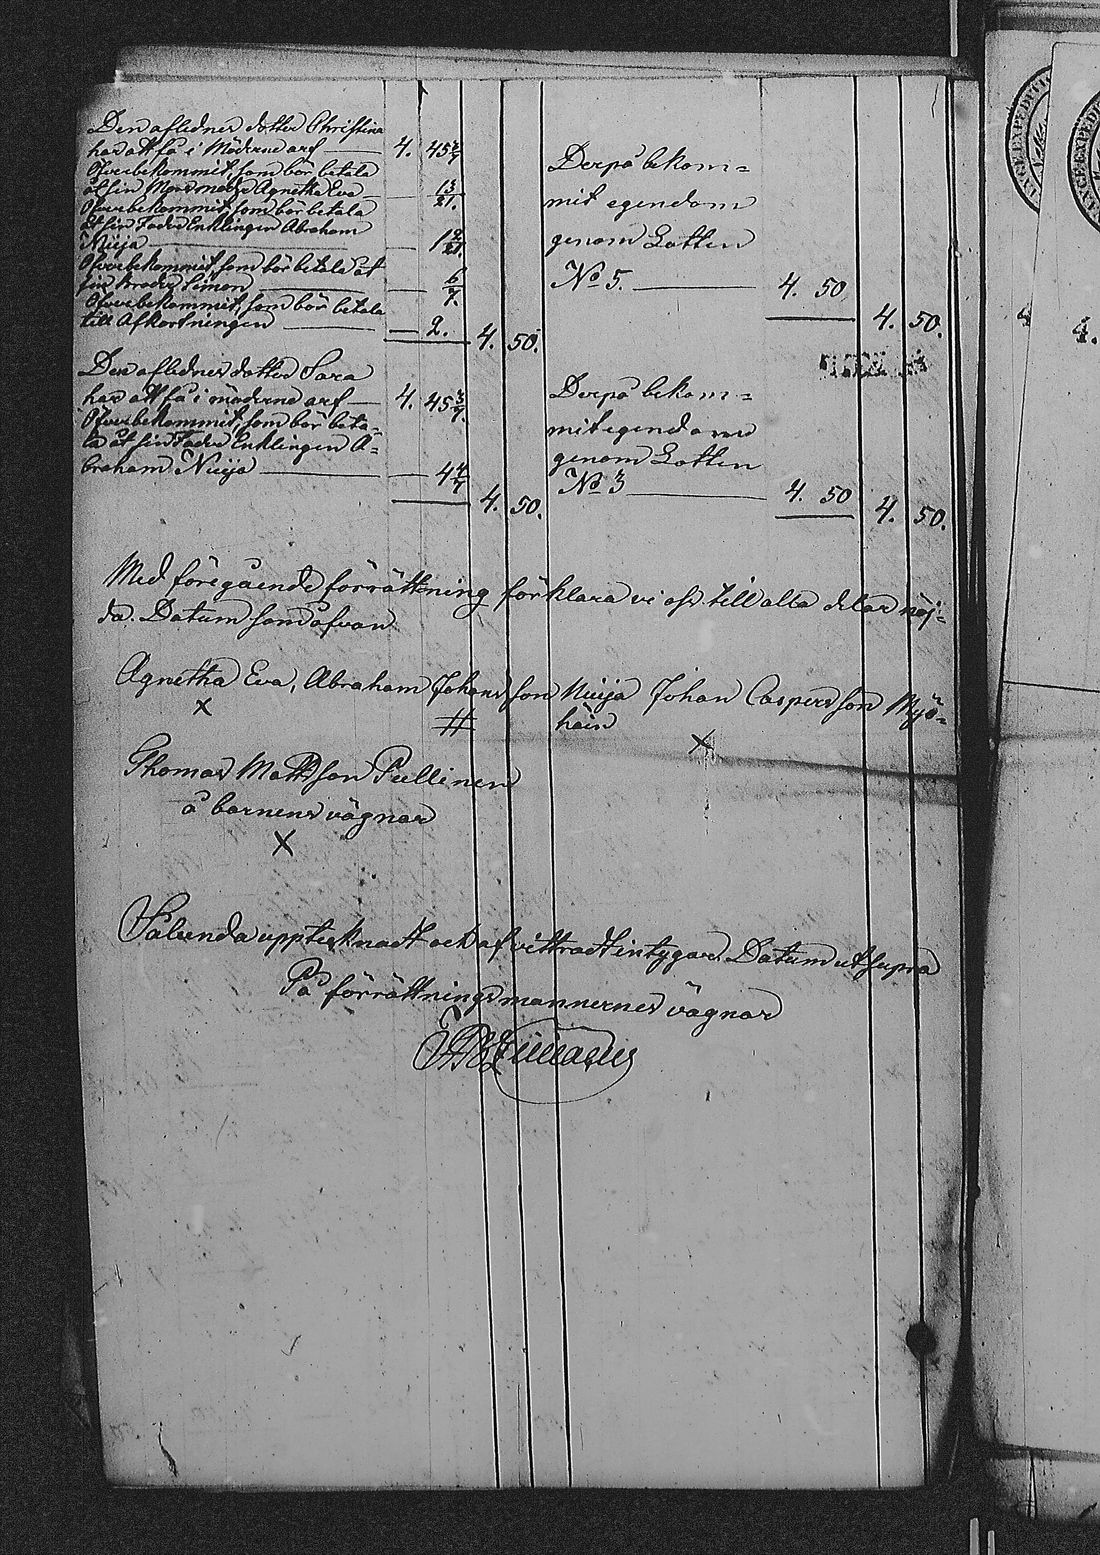 Den aflednes dotter Christina
har att få i Möderne arf — 4. 45 3/7
Öfverbekommit, som bör betala
åt sin Mormoder Agnetha Eva — 13/21.
Öfverbekommit, som bör betala
åt sin Fader Enklingen Abraham
Nuija — 1 2/21.
Öfverbekommit, som bör betala åt
sin broder Simon — 6/7.
Öfverbekommit, som bör betala
till Afkortningen — 2. 4. 50.
Derpå bekom=
mit egendom
genom Lotten
No 5. — 4. 50
4. 50.
Den aflednes dotter Sara
har att få i möderne arf — 4. 45 3/7.
Öfverbekommit, som bör beta=
la åt sin Fader Enklingen A=
braham Nuija — 4 4/7 4. 50.
Derpå bekom=
mit egendom
genom Lotten
No 3 — 4. 50 4. 50.
Med föregående förrättning förklara vi oss till alla delar nöj=
da. Datum som ofvan
Agnetha Eva, Abraham Johansson Nuija Johan Caspersson Myö=
häin
X # X
Thomas Mattsson Pullinen
å barnens vägnar
X
Sålunda uppteknadt och afvittradt intygar. Datum ut supra
På förrättningsmannernes vägnar
4
4.